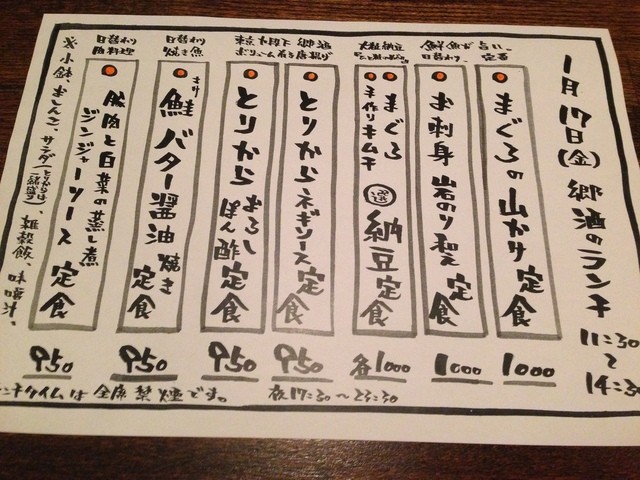 1月17日(金) 郷酒のランチ
11:30〜14:30
鮮魚が旨い。
定番
まぐろの山かけ定食
1000
日替わり。
お刺身 岩のり和え定食
1000
大粒納豆
まぐろ
手作りキムチ
選 納豆定食
各1000
郷酒
とりからネギソース定食
950
とりからおろしぽん酢定食
950
日替わり
焼き魚
さけ
鮭バター醤油焼き定食
950
日替わり
豚料理
豚肉と白菜の蒸し煮
ジンジャーソース定食
950
※小鉢、おしんこ、サラダ(とりからは一緒盛り)、雑穀飯、味噌汁、
ランチタイムは全席禁煙です。
夜17:30〜23:30